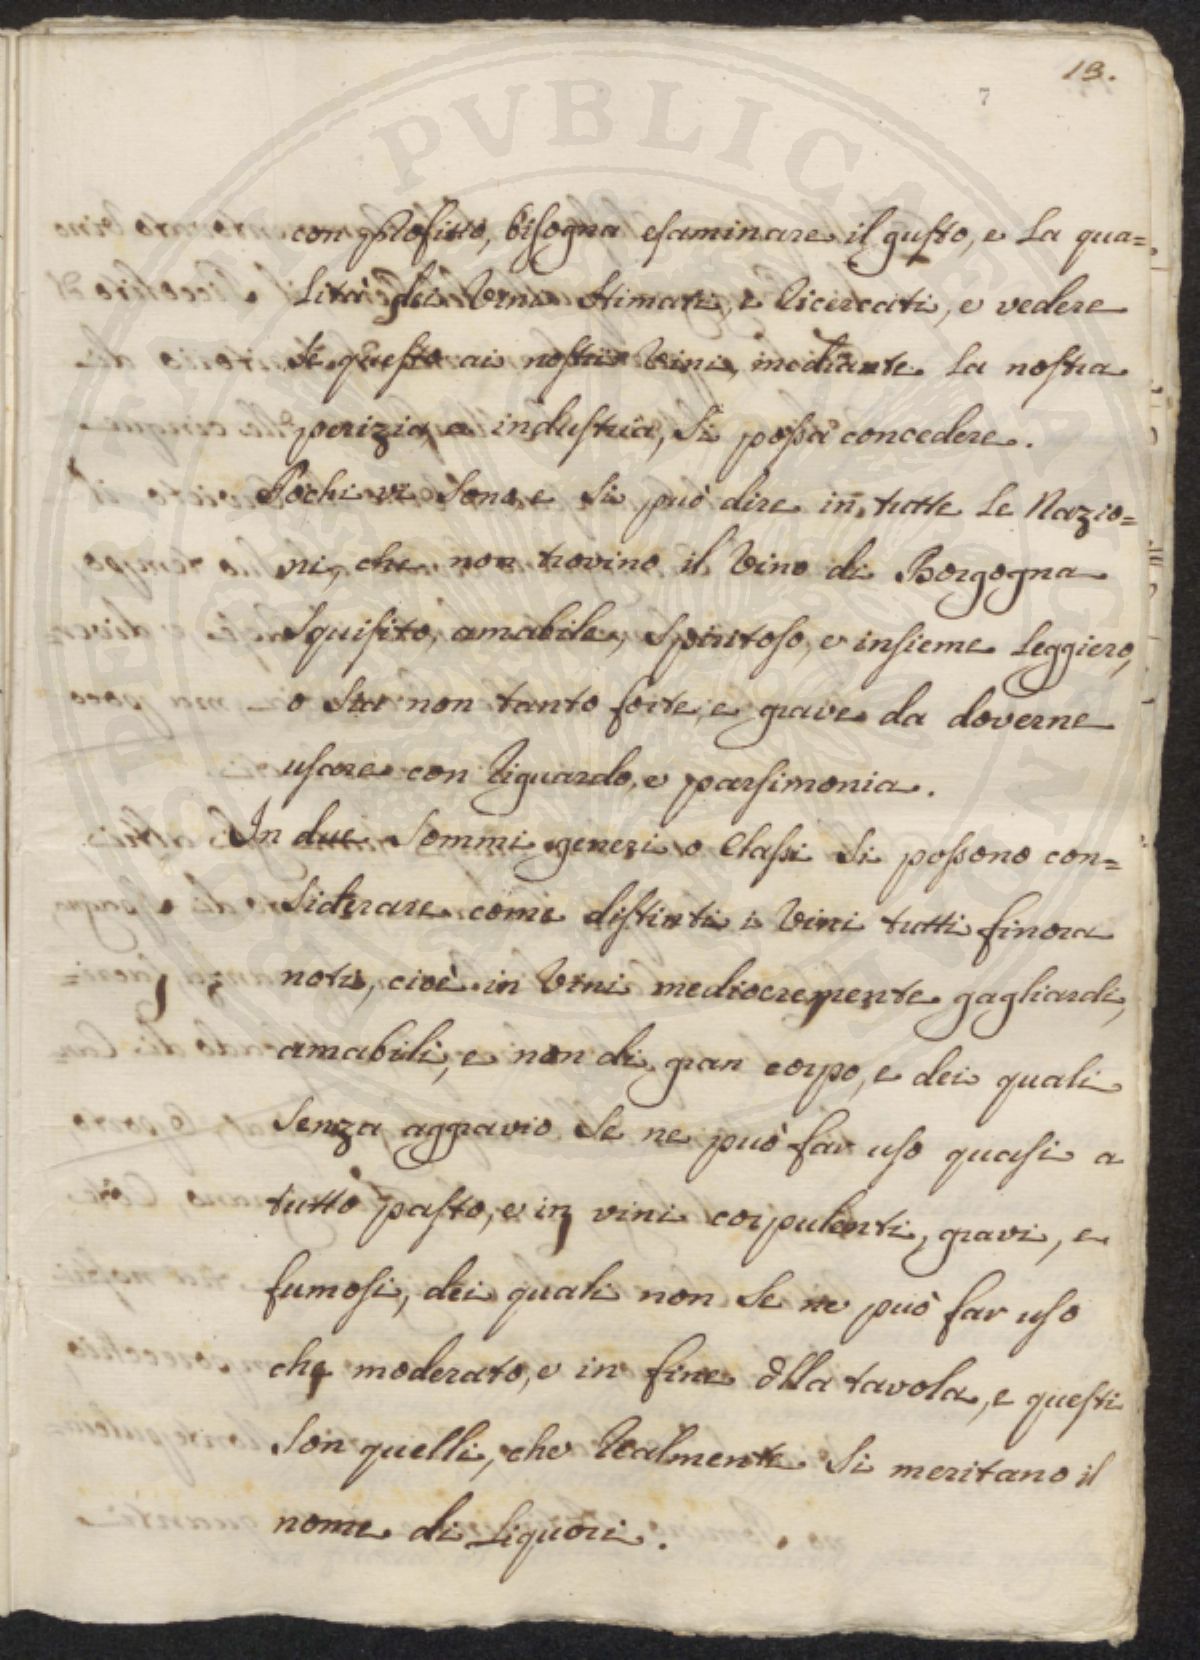 13.
7
con profitto, bisogna esaminare il gusto, e la qua=
lità dei Vini stimati, e ricercati, e vedere
se questo ai nostri Vini, mediante la nostra
perizia, e industria, si possa concedere.
Pochi vi sono, e si può dire in tutte le Nazio=
ni, che non trovino il Vino di Borgogna
squisito, amabile, spiritoso, e insieme leggiero,
o sia non tanto forte, e grave da doverne
usare con riguardo, e parsimonia.
In due sommi generi o Classi si possono con=
siderare come distinti i Vini tutti finora
noti, cioè in Vini mediocremente gagliardi,
amabili, e non di gran corpo, e dei quali
senza aggravio se ne può far uso quasi a
tutto pasto, e in vini corpulenti, gravi, e
fumosi, dei quali non se ne può far uso
che moderato, e in fine dlla tavola, e questi
son quelli, che realmente si meritano il
nome di Liquori.